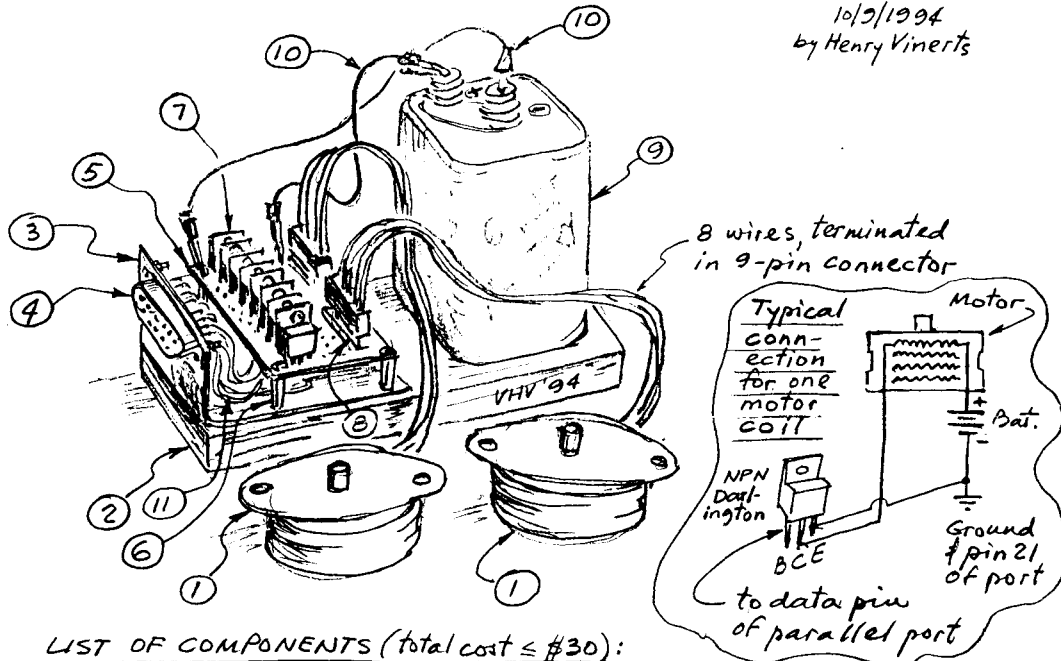 10/9/1994
by Henry Vinerts
10
10
7
5
3
4
9
8 wires, terminated
in 9-pin connector
Typical
conn-
ection
for one
motor
coil
Motor
+
Bat.
-
NPN
Darl-
ington
B C E
Ground
& pin 21
of port
to data pin
of parallel port
VHV '94
8
2
11
6
1
1
+
-
6V
LIST OF COMPONENTS (total cost ≤ $30):